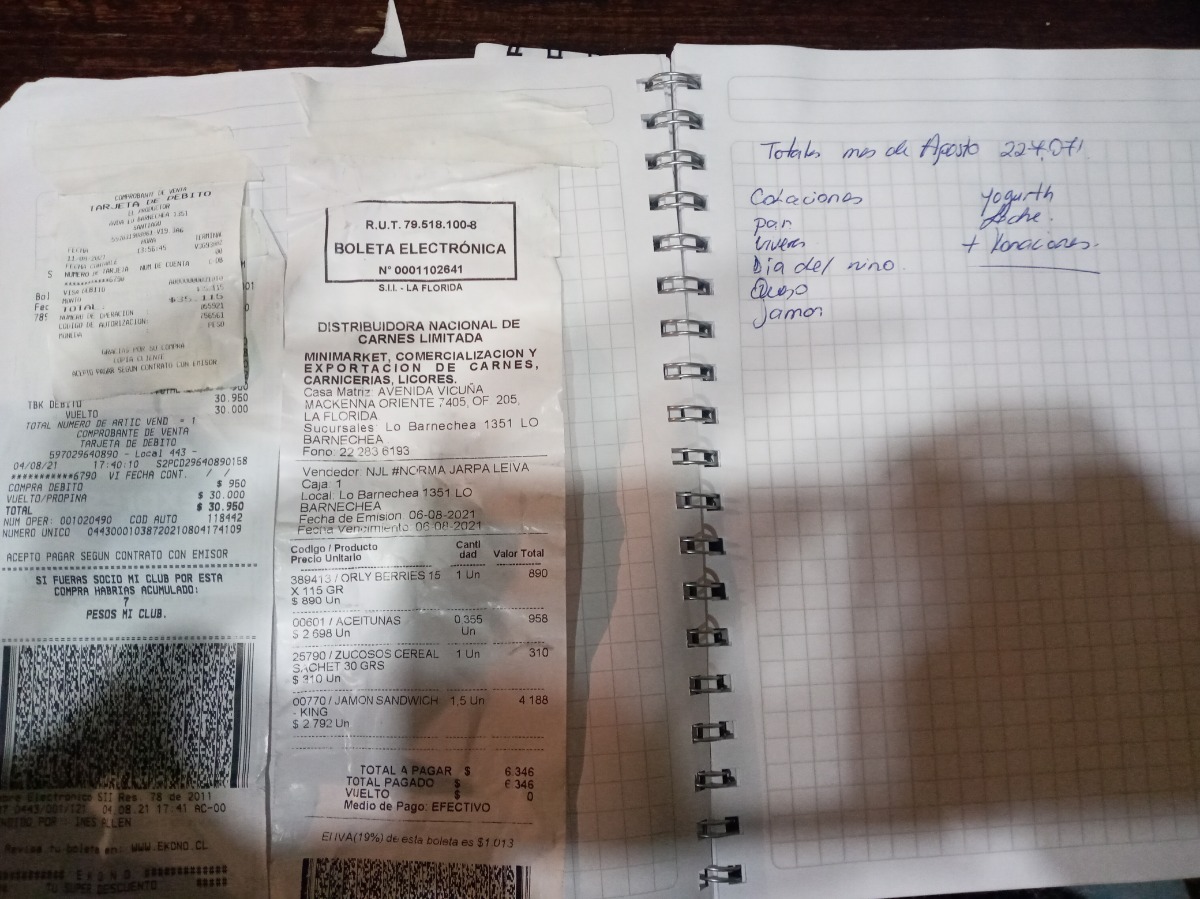 COMPROBANTE DE VENTA
TARJETA DE DEBITO
EL PRODUCTOR
AVDA LO BARNECHEA 1351
SANTIAGO
FECHA HORA TERMINAL
13:56:45
FECHA CONTABLE
NUMERO DE TARJETA NUM DE CUENTA
VISA DEBITO
MONTO
TOTAL
NUMERO DE OPERACION
CODIGO DE AUTORIZACION:
MONEDA PESO
GRACIAS POR SU COMPRA
COPIA CLIENTE
ACEPTO PAGAR SEGUN CONTRATO CON EMISOR
TBK DEBITO 30.950
VUELTO 30.000
TOTAL NUMERO DE ARTIC VEND = 1
COMPROBANTE DE VENTA
TARJETA DE DEBITO
597029640890 - Local 443 -
04/08/21 17:40:10 S2PCD29640890158
***********6790 VI FECHA CONT. / /
COMPRA DEBITO $ 950
VUELTO/PROPINA $ 30.000
TOTAL $ 30.950
NUM OPER: 001020490 COD AUTO 118442
NUMERO UNICO 04430001038720210804174109
ACEPTO PAGAR SEGUN CONTRATO CON EMISOR
SI FUERAS SOCIO MI CLUB POR ESTA
COMPRA HABRIAS ACUMULADO:
7
PESOS MI CLUB.
Electrónico SII Res. 78 de 2011
04.08.21 17:41 AC-00
POR : INES ALLEN
Revisa tu boleta en: WWW.EKONO.CL
EKONO
TU SUPER DESCUENTO
R.U.T. 79.518.100-8
BOLETA ELECTRÓNICA
N° 0001102641
S.I.I. - LA FLORIDA
DISTRIBUIDORA NACIONAL DE
CARNES LIMITADA
MINIMARKET, COMERCIALIZACION Y
EXPORTACION DE CARNES,
CARNICERIAS, LICORES.
Casa Matriz: AVENIDA VICUÑA
MACKENNA ORIENTE 7405, OF 205,
LA FLORIDA
Sucursales: Lo Barnechea 1351 LO
BARNECHEA
Fono: 22 283 6193
Vendedor: NJL #NORMA JARPA LEIVA
Caja: 1
Local: Lo Barnechea 1351 LO
BARNECHEA
Fecha de Emision: 06-08-2021
Fecha Vencimiento: 06-08-2021
Codigo / Producto Canti Valor Total
Precio Unitario dad
389413 / ORLY BERRIES 15 1 Un 890
X 115 GR
$ 890 Un
00601 / ACEITUNAS 0,355 958
$ 2.698 Un Un
25790 / ZUCOSOS CEREAL 1 Un 310
SACHET 30 GRS
$ 310 Un
00770 / JAMON SANDWICH 1,5 Un 4.188
- KING
$ 2.792 Un
TOTAL A PAGAR $ 6.346
TOTAL PAGADO $ 6.346
VUELTO $ 0
Medio de Pago: EFECTIVO
El IVA(19%) de esta boleta es $1.013
Totales mes de Agosto 227.071
Colaciones yogurth
pan leche.
viveres + Donaciones.
Dia del nino
Queso
Jamon